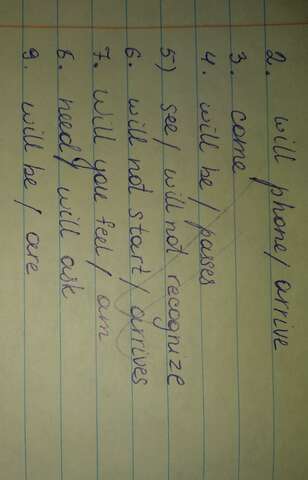 2. will phone / arrive
3. come
4. will be / passes
5) see / will not recognize
6. will not start / arrives
7. Will you feel / am
8. need / will ask
9. will be / are